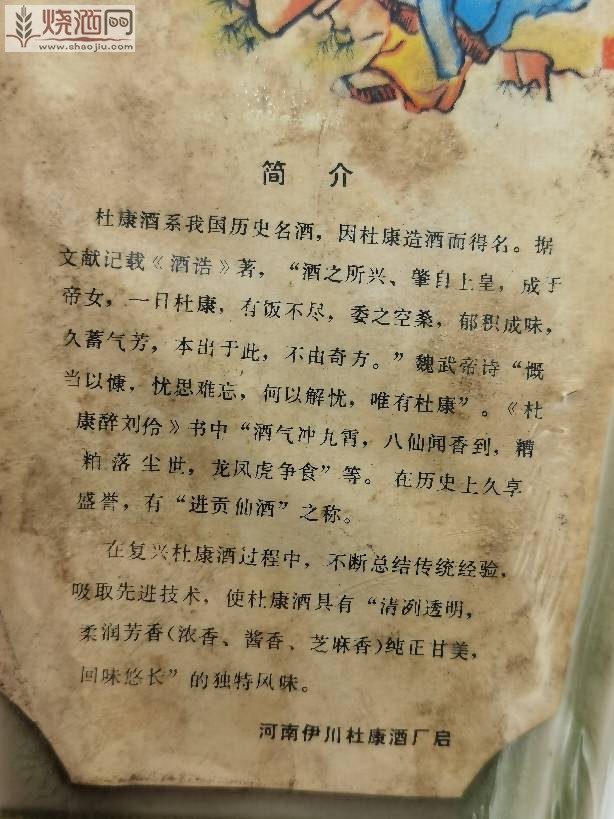 烧酒网
www.shaojiu.com
简 介
杜康酒系我国历史名酒，因杜康造酒而得名。据
文献记载《酒浩》著，“酒之所兴、肇自上皇，成于
帝女，一曰杜康，有饭不尽，委之空桑，郁积成味，
久蓄气芳，本出于此，不由奇方。”魏武帝诗“慨
当以慷，忧思难忘，何以解忧，唯有杜康”。《杜
康醉刘伶》书中“酒气冲九霄，八仙闻香到，糟
粕落尘世，龙凤虎争食”等。在历史上久享
盛誉，有“进贡仙酒”之称。
在复兴杜康酒过程中，不断总结传统经验，
吸取先进技术，使杜康酒具有“清冽透明，
柔润芳香(浓香、酱香、芝麻香)纯正甘美，
回味悠长”的独特风味。
河南伊川杜康酒厂启